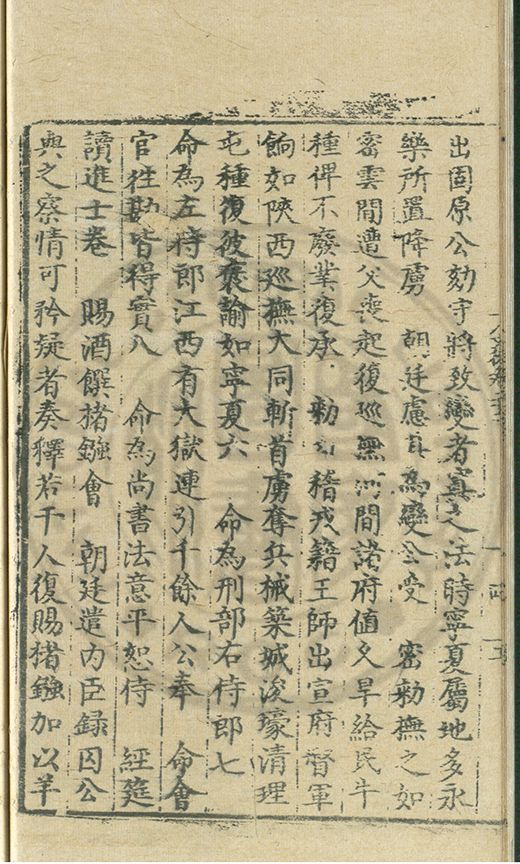 出固原公劾守將致變者寘之法時寧夏屬地多永
樂所置降虜　朝廷慮其為變公受　密勅撫之如
密雲間遭父喪起復巡黑間諸府值久旱給民牛
種俾不廢業復承　勅稽戎籍王師出宣府督軍
餉如陝西巡撫大同斬首虜奪兵械築城浚壕清理
屯種復彼褒諭如寧夏六　命為刑部右侍郎七
命為左侍郎江西有大獄連引千餘人公奉　命會
官往勘皆得實八　命為尚書法意平恕侍　經筵
讀進士卷　賜酒饌楮鏹會　朝廷遣內臣錄囚公
與之察情可矜疑者奏釋若干人復賜楮鏹加以羊